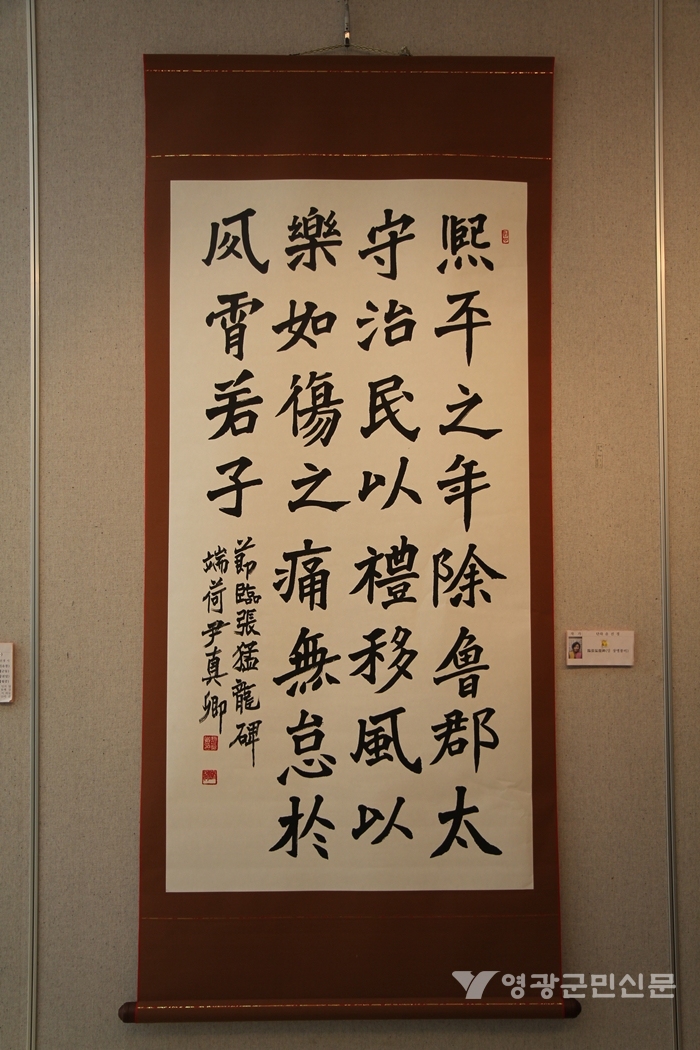 熙平之年除魯郡太
守治民以禮移風以
樂如傷之痛無怠於
夙宵若子
節臨張猛龍碑
端荷尹真卿
영광군민신문